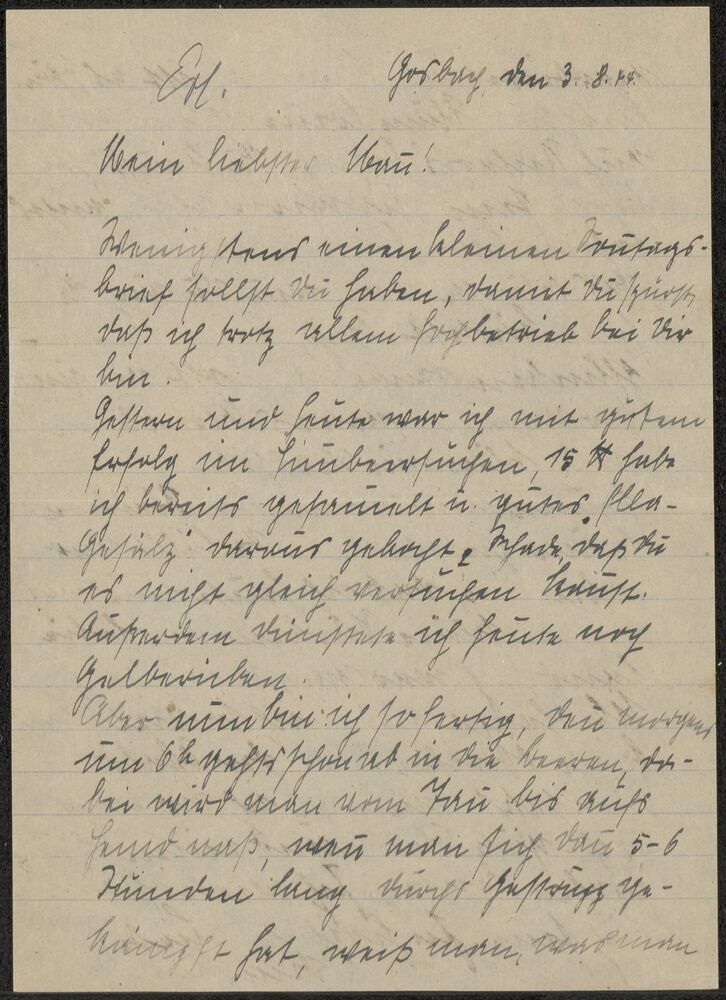 Erl.
Gosbach, den 3. 8. 44.
Mein liebster Mann!
Wenigstens einen kleinen Sonntags-
brief sollst Du haben, damit Du spürst,
daß ich trotz allem Hochbetrieb bei Dir
bin.
Gestern und heute war ich mit gutem
Erfolg im Himbeersuchen, 15 ℔ habe
ich bereits gesammelt u. gutes
Gesälz daraus gekocht. Schade, daß Du
es nicht gleich versuchen kannst.
Außerdem dünstete ich heute noch
Gelberüben.
Aber nun bin ich so fertig, denn morgens
um 6 h gehts schon ab in die Beeren, da-
bei wird man vom Tau bis aufs
Hemd naß, wenn man sich dann 5-6
Stunden lang durchs Gestrüpp ge-
kämpft hat, weiß man, was man